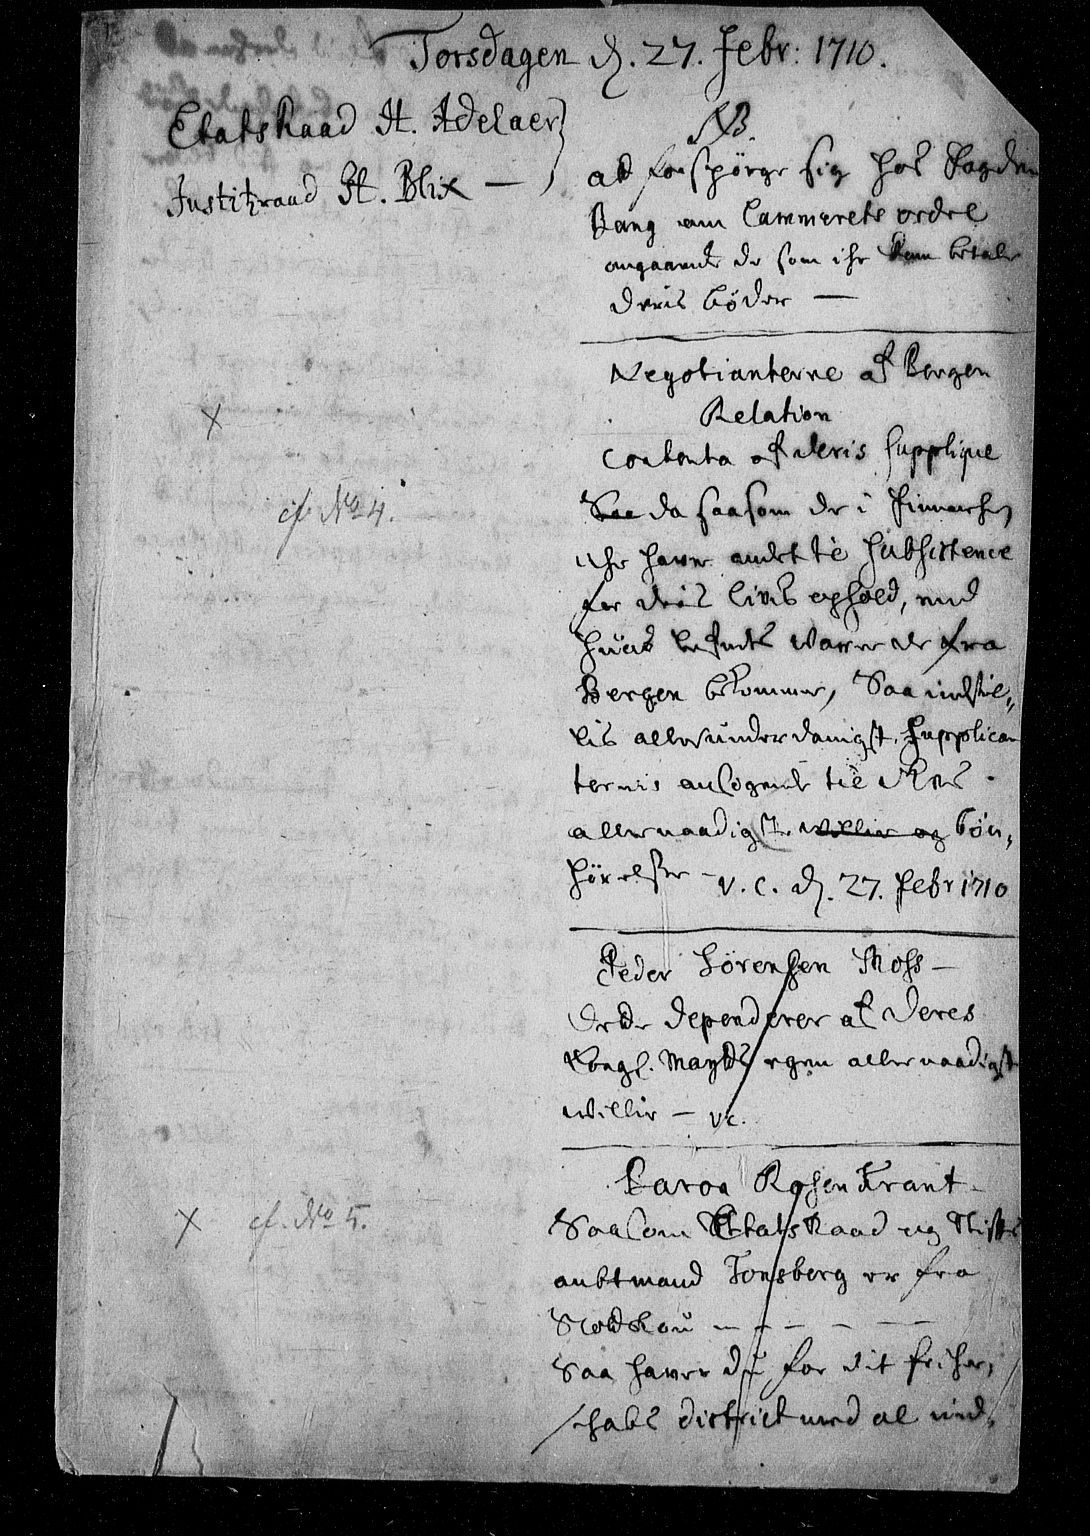 Torsdagen d. 27. Febr: 1710.
EtatsRaad H. Adelaer
Justitzraad H. Blix —
NB.
at forspørge sig hos
Bang om Cammerets ordre
angaaende de som ike kan betale
deris bøder —
Negotianterne af Bergen
Relation
Contenta af deris supplique
da saasom de i Finmarchen
iche haver andet til subsistence
for deris livs ophold, end
hvad de fra
Bergen bekommer, Saa indstil„
lis allerunderdanigst Supplican
ternis ansøgende til
allernaadigste willie og bøn„
hørelse — V. C. d. 27. Febr 1710
Peder Sörensen Moss —
dette dependerer af Deres
Kongl. Mayts egen allernaadigste
willie — vc.
cf No 4.
Baron RosenKrantz
Saasom EtatsRaad og Stifts
ambtmand Tonsberg er fra
— — — — —
Saa haver du for dit friher„
schabs district med al ind„
cf. No 5.